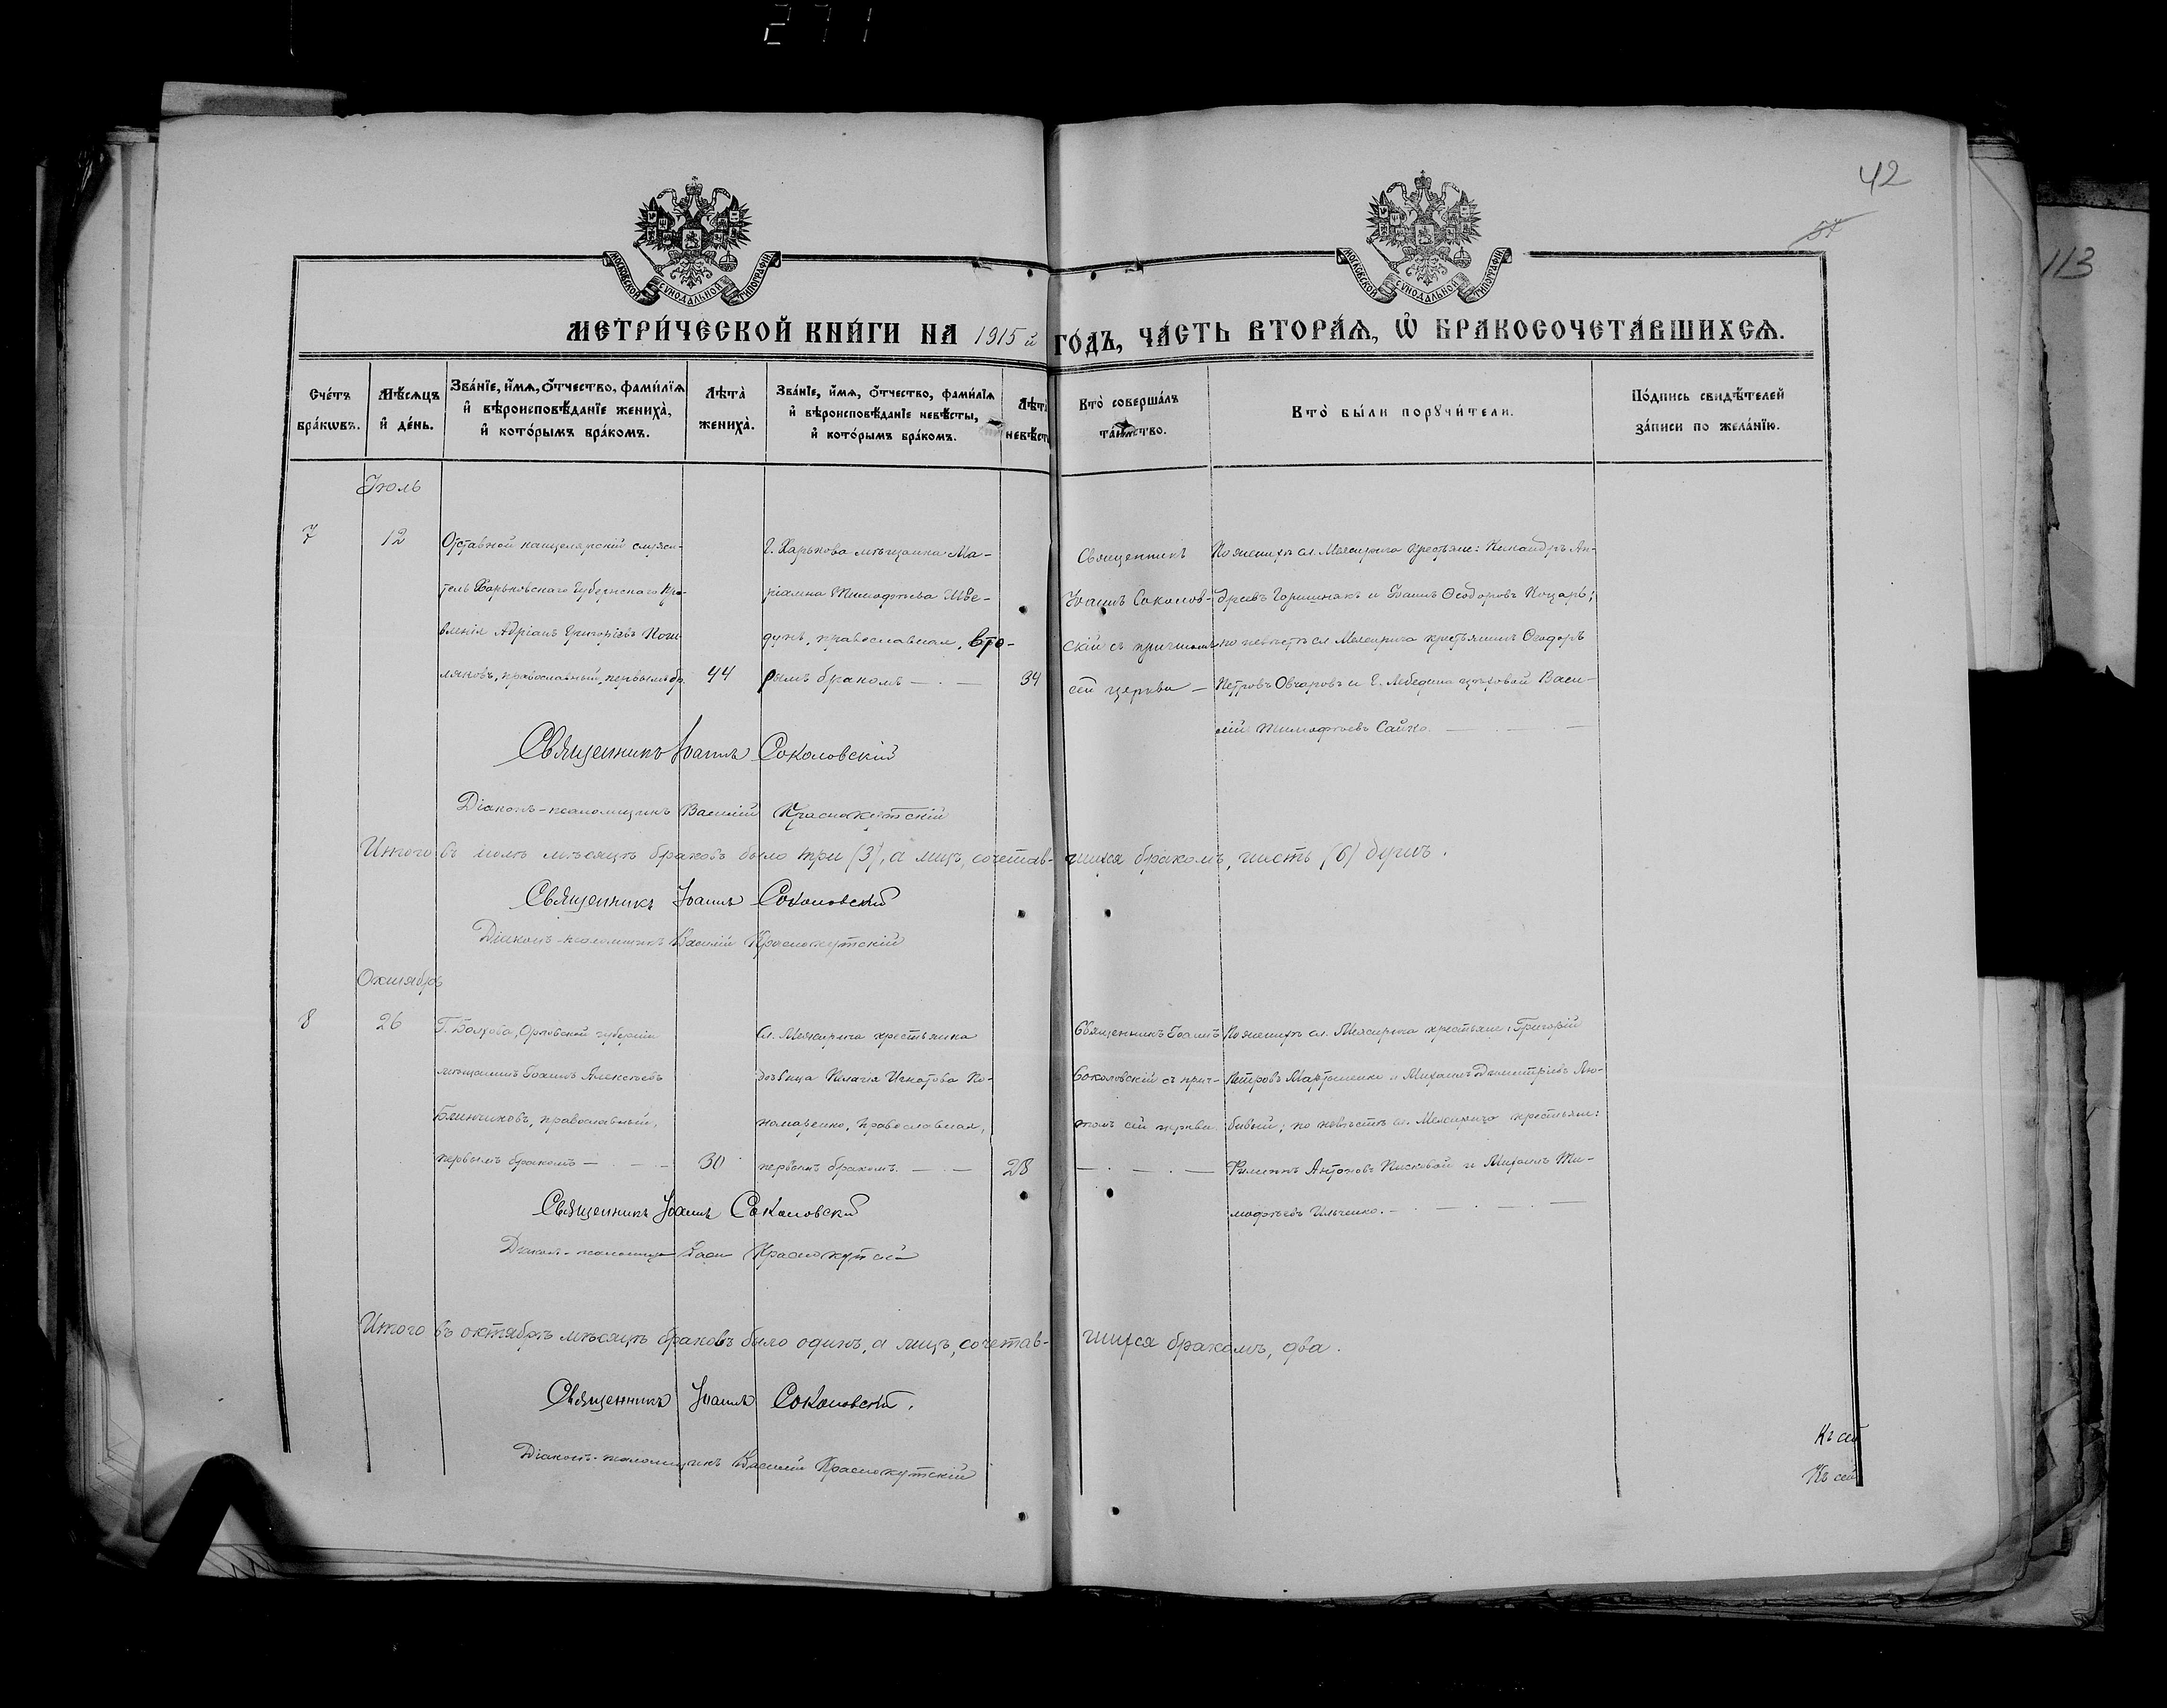 271
42
57
113
МОСКОВСКОЙ СѴНОДАЛЬНОЙ ТИПОГРАФІИ
МОСКОВСКОЙ СѴНОДАЛЬНОЙ ТИПОГРАФІИ
МЕТРИ́ЧЕСКОЙ КНИ́ГИ НА 1915й ГО́ДЪ, ЧА́СТЬ ВТОРА́Ѧ, Ѡ҆ БРАКОСОЧЕТА́ВШИХСѦ.
Сче́тъ бра́кωвъ.
Мѣ́сѧцъ и҆ де́нь.
Зва́нїе, и҆́мѧ, ѻ҆́тчество, фами́лїѧ и҆ вѣроисповѣ́данїе жениха̀, и҆ кото́рымъ бра́комъ.
Лѣта̀ жениха̀.
Зва́нїе, и҆́мѧ, ѻ҆́тчество, фами́лїѧ и҆ вѣроисповѣ́данїе невѣ́сты, и҆ кото́рымъ бра́комъ.
Лѣта̀ невѣ́сты
Кто̀ соверша́лъ та́инство.
Кто̀ бы́ли порꙋчи́тели.
По́дпись свидѣ́телей за́писи по жела́нїю.
Іюль
7
12
Отставной канцелярскій служи-
тель Харьковскаго Губернскаго Пра-
вленія Адріанъ Григоріевъ
православный, первымъ бр.
44
Г. Харькова мѣщанка Ма-
ріамна Тимофѣева Шве-
дунъ, православная, вто-
рымъ бракомъ — . —
34
Священникъ
Іоаннъ Соколов-
скій съ причтомъ
сей церкви —
По женихѣ сл. Межирича крестьяне: Никандръ Ан-
дреевъ Горишнякъ и Іоаннъ Ѳеодоровъ Коцарь;
по невѣстѣ сл. Межирича крестьянинъ Ѳеодоръ
Петровъ Овчаровъ и г. Лебедина цеховой Васи-
лій Тимофѣевъ Сайко. — . — . —
Священникъ Іоаннъ Соколовскій
Діаконъ-псаломщикъ Василій Краснокутскій
Итого въ іюлѣ мѣсяцѣ браковъ было три (3), а лицъ, сочетав-шихся бракомъ, шесть (6) душъ.
Священникъ Іоаннъ Соколовскій
Діаконъ-псаломщикъ Василій Краснокутскій
Октябрь
8
26
Г. Болхова, Орловской губерніи
мѣщанинъ Іоаннъ Алексѣевъ
Блинчиковъ, православный,
первымъ бракомъ — . —
30
Сл. Межирича крестьянка
дѣвица Пелагія Игнатова По-
номаренко, православная,
первымъ бракомъ. — . —
28
Священникъ Іоаннъ
Соколовскій съ прич-
томъ сей церкви.
— . — . —
По женихѣ сл. Межирича крестьяне: Григорій
Петровъ Мартыненко и Михаилъ Димитріевъ Лю-
бивый; по невѣстѣ сл. Межирича крестьяне:
Филиппъ Антоновъ Писковой и Михаилъ Ти-
мофѣевъ Ильченко. — . — . — . —
Священникъ Іоаннъ Соколовскій
Діаконъ-псаломщикъ Васи Краснокутскій
Итого въ октябрѣ мѣсяцѣ браковъ было одинъ, а лицъ, сочетав-шихся бракомъ, два.
Священникъ Іоаннъ Соколовскій.
Діаконъ-псаломщикъ Василій Краснокутскій
Къ сей
Къ сей